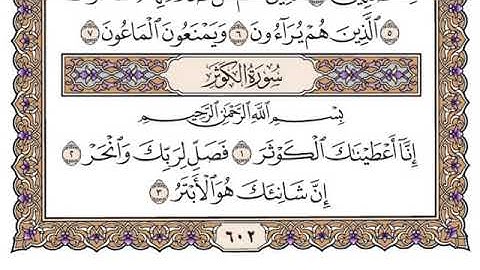 ٥ ٱلَّذِينَ هُمۡ يُرَآءُونَ ٦ وَيَمۡنَعُونَ ٱلۡمَاعُونَ ٧
سُورَةُ الكَوۡثَرِ
بِسۡمِ ٱللَّهِ ٱلرَّحۡمَٰنِ ٱلرَّحِيمِ
إِنَّآ أَعۡطَيۡنَٰكَ ٱلۡكَوۡثَرَ ١ فَصَلِّ لِرَبِّكَ وَٱنۡحَرۡ ٢
إِنَّ شَانِئَكَ هُوَ ٱلۡأَبۡتَرُ ٣
٦٠٢